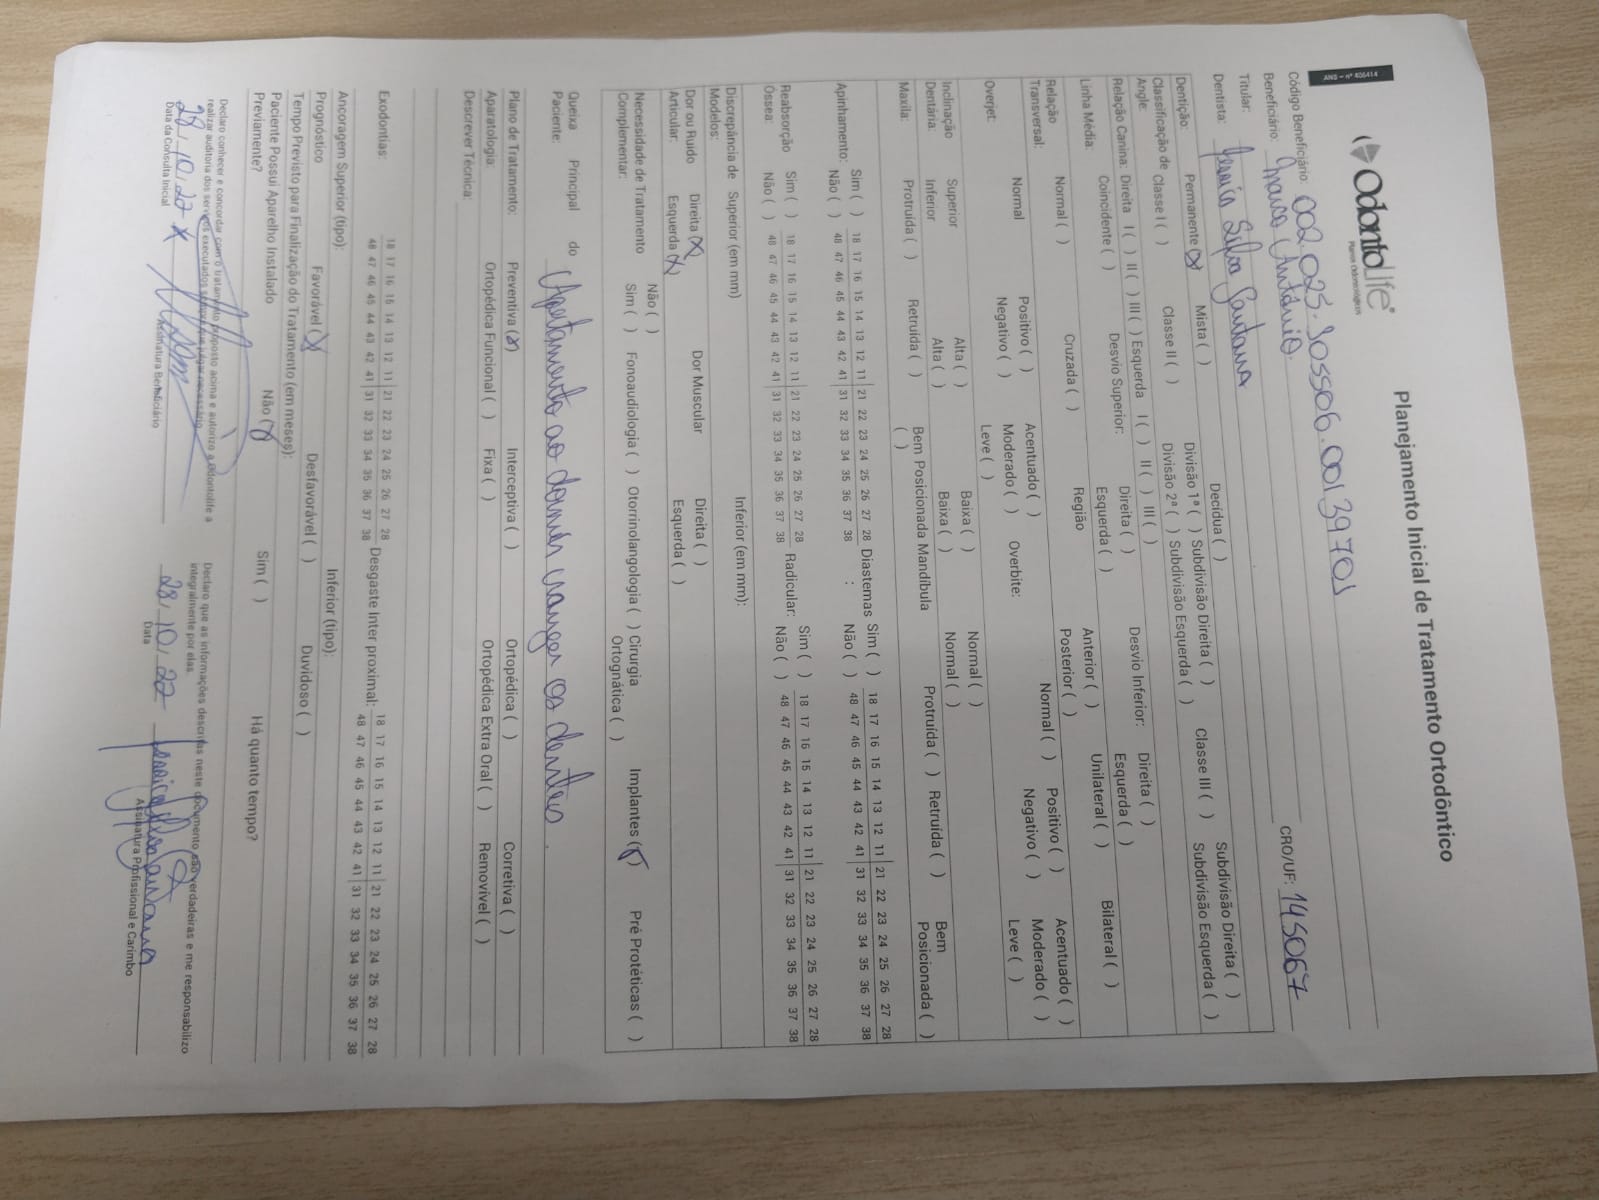 ANS - nº 406414
OdontoLife®
Planos Odontológicos
Planejamento Inicial de Tratamento Ortodôntico
Código Beneficiário: 002.025.305506.00139701
Beneficiário: Antônio.
Titular: CRO/UF: 145067
Dentista: Silva Santana
Dentição: Permanente (X) Mista ( ) Decídua ( )
Classificação de Angle: Classe I ( ) Classe II ( ) Divisão 1ª ( ) Subdivisão Direita ( ) Classe III ( ) Subdivisão Direita ( )
Divisão 2ª ( ) Subdivisão Esquerda ( ) Subdivisão Esquerda ( )
Relação Canina: Direita I ( ) II ( ) III ( ) Esquerda I ( ) II ( ) III ( )
Linha Média: Coincidente ( ) Desvio Superior: Direita ( ) Desvio Inferior: Direita ( )
Esquerda ( ) Esquerda ( )
Relação Transversal: Normal ( ) Cruzada ( ) Região Anterior ( ) Unilateral ( ) Bilateral ( )
Posterior ( )
Overjet: Normal Positivo ( ) Acentuado ( ) Overbite: Normal ( ) Positivo ( ) Acentuado ( )
Negativo ( ) Moderado ( ) Negativo ( ) Moderado ( )
Leve ( ) Leve ( )
Inclinação Dentária: Superior Alta ( ) Baixa ( ) Normal ( )
Inferior Alta ( ) Baixa ( ) Normal ( )
Maxila: Protruída ( ) Retruída ( ) Bem Posicionada ( ) Mandíbula Protruída ( ) Retruída ( ) Bem Posicionada ( )
Apinhamento: Sim ( ) 18 17 16 15 14 13 12 11 | 21 22 23 24 25 26 27 28 Diastemas: Sim ( ) 18 17 16 15 14 13 12 11 | 21 22 23 24 25 26 27 28
Não ( ) 48 47 46 45 44 43 42 41 | 31 32 33 34 35 36 37 38 Não ( ) 48 47 46 45 44 43 42 41 | 31 32 33 34 35 36 37 38
Reabsorção Óssea: Sim ( ) 18 17 16 15 14 13 12 11 | 21 22 23 24 25 26 27 28 Radicular: Sim ( ) 18 17 16 15 14 13 12 11 | 21 22 23 24 25 26 27 28
Não ( ) 48 47 46 45 44 43 42 41 | 31 32 33 34 35 36 37 38 Não ( ) 48 47 46 45 44 43 42 41 | 31 32 33 34 35 36 37 38
Discrepância de Modelos: Superior (em mm) Inferior (em mm):
Dor ou Ruido Articular: Direita (X) Dor Muscular Direita ( )
Esquerda (X) Esquerda ( )
Necessidade de Tratamento Complementar: Não ( )
Sim ( ) Fonoaudiologia ( ) Otorrinolangologia ( ) Cirurgia Ortognática ( ) Implantes (X) Pré Protéticas ( )
Queixa Principal do Paciente: Apertamento ao dormir, ranger os dentes.
Plano de Tratamento: Preventiva (X) Interceptiva ( ) Ortopédica ( ) Corretiva ( )
Aparatologia: Ortopédica Funcional ( ) Fixa ( ) Ortopédica Extra Oral ( ) Removivel ( )
Descrever Técnica:
Exodontias: 18 17 16 15 14 13 12 11 | 21 22 23 24 25 26 27 28 Desgaste Inter proximal: 18 17 16 15 14 13 12 11 | 21 22 23 24 25 26 27 28
48 47 46 45 44 43 42 41 | 31 32 33 34 35 36 37 38 48 47 46 45 44 43 42 41 | 31 32 33 34 35 36 37 38
Ancoragem Superior (tipo): Inferior (tipo):
Prognóstico Favorável (X) Desfavorável ( ) Duvidoso ( )
Tempo Previsto para Finalização do Tratamento (em meses):
Paciente Possui Aparelho Instalado Previamente? Não (X) Sim ( ) Há quanto tempo?
Declaro conhecer e concordar com o tratamento proposto acima e autorizo a Odontolife a
realizar auditoria dos serviços executados sempre que julgar necessário
28/10/22 x
Data da Consulta Inicial Assinatura Beneficiário
Declaro que as informações descritas neste documento são verdadeiras e me responsabilizo
integralmente por elas.
28/10/22
Data Assinatura Profissional e Carimbo